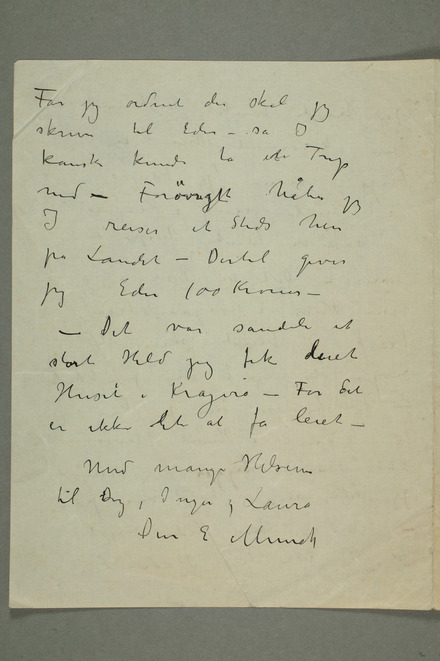 Får jeg ordnet det skal jeg
skrive til Eder – så I
kanske kunde ta en Trip
ned – Forøvrigt håber jeg
I reiser et Steds hen
på Landet – Dertil giver
jeg Eder 100 Kroner –
– Det var sandelig et
stort Held jeg fik leiet
Huset i Kragerø – For det
er ikke let at få leiet –
Med mange Hilsener
til Dig, Inger og Laura
Din E Munch